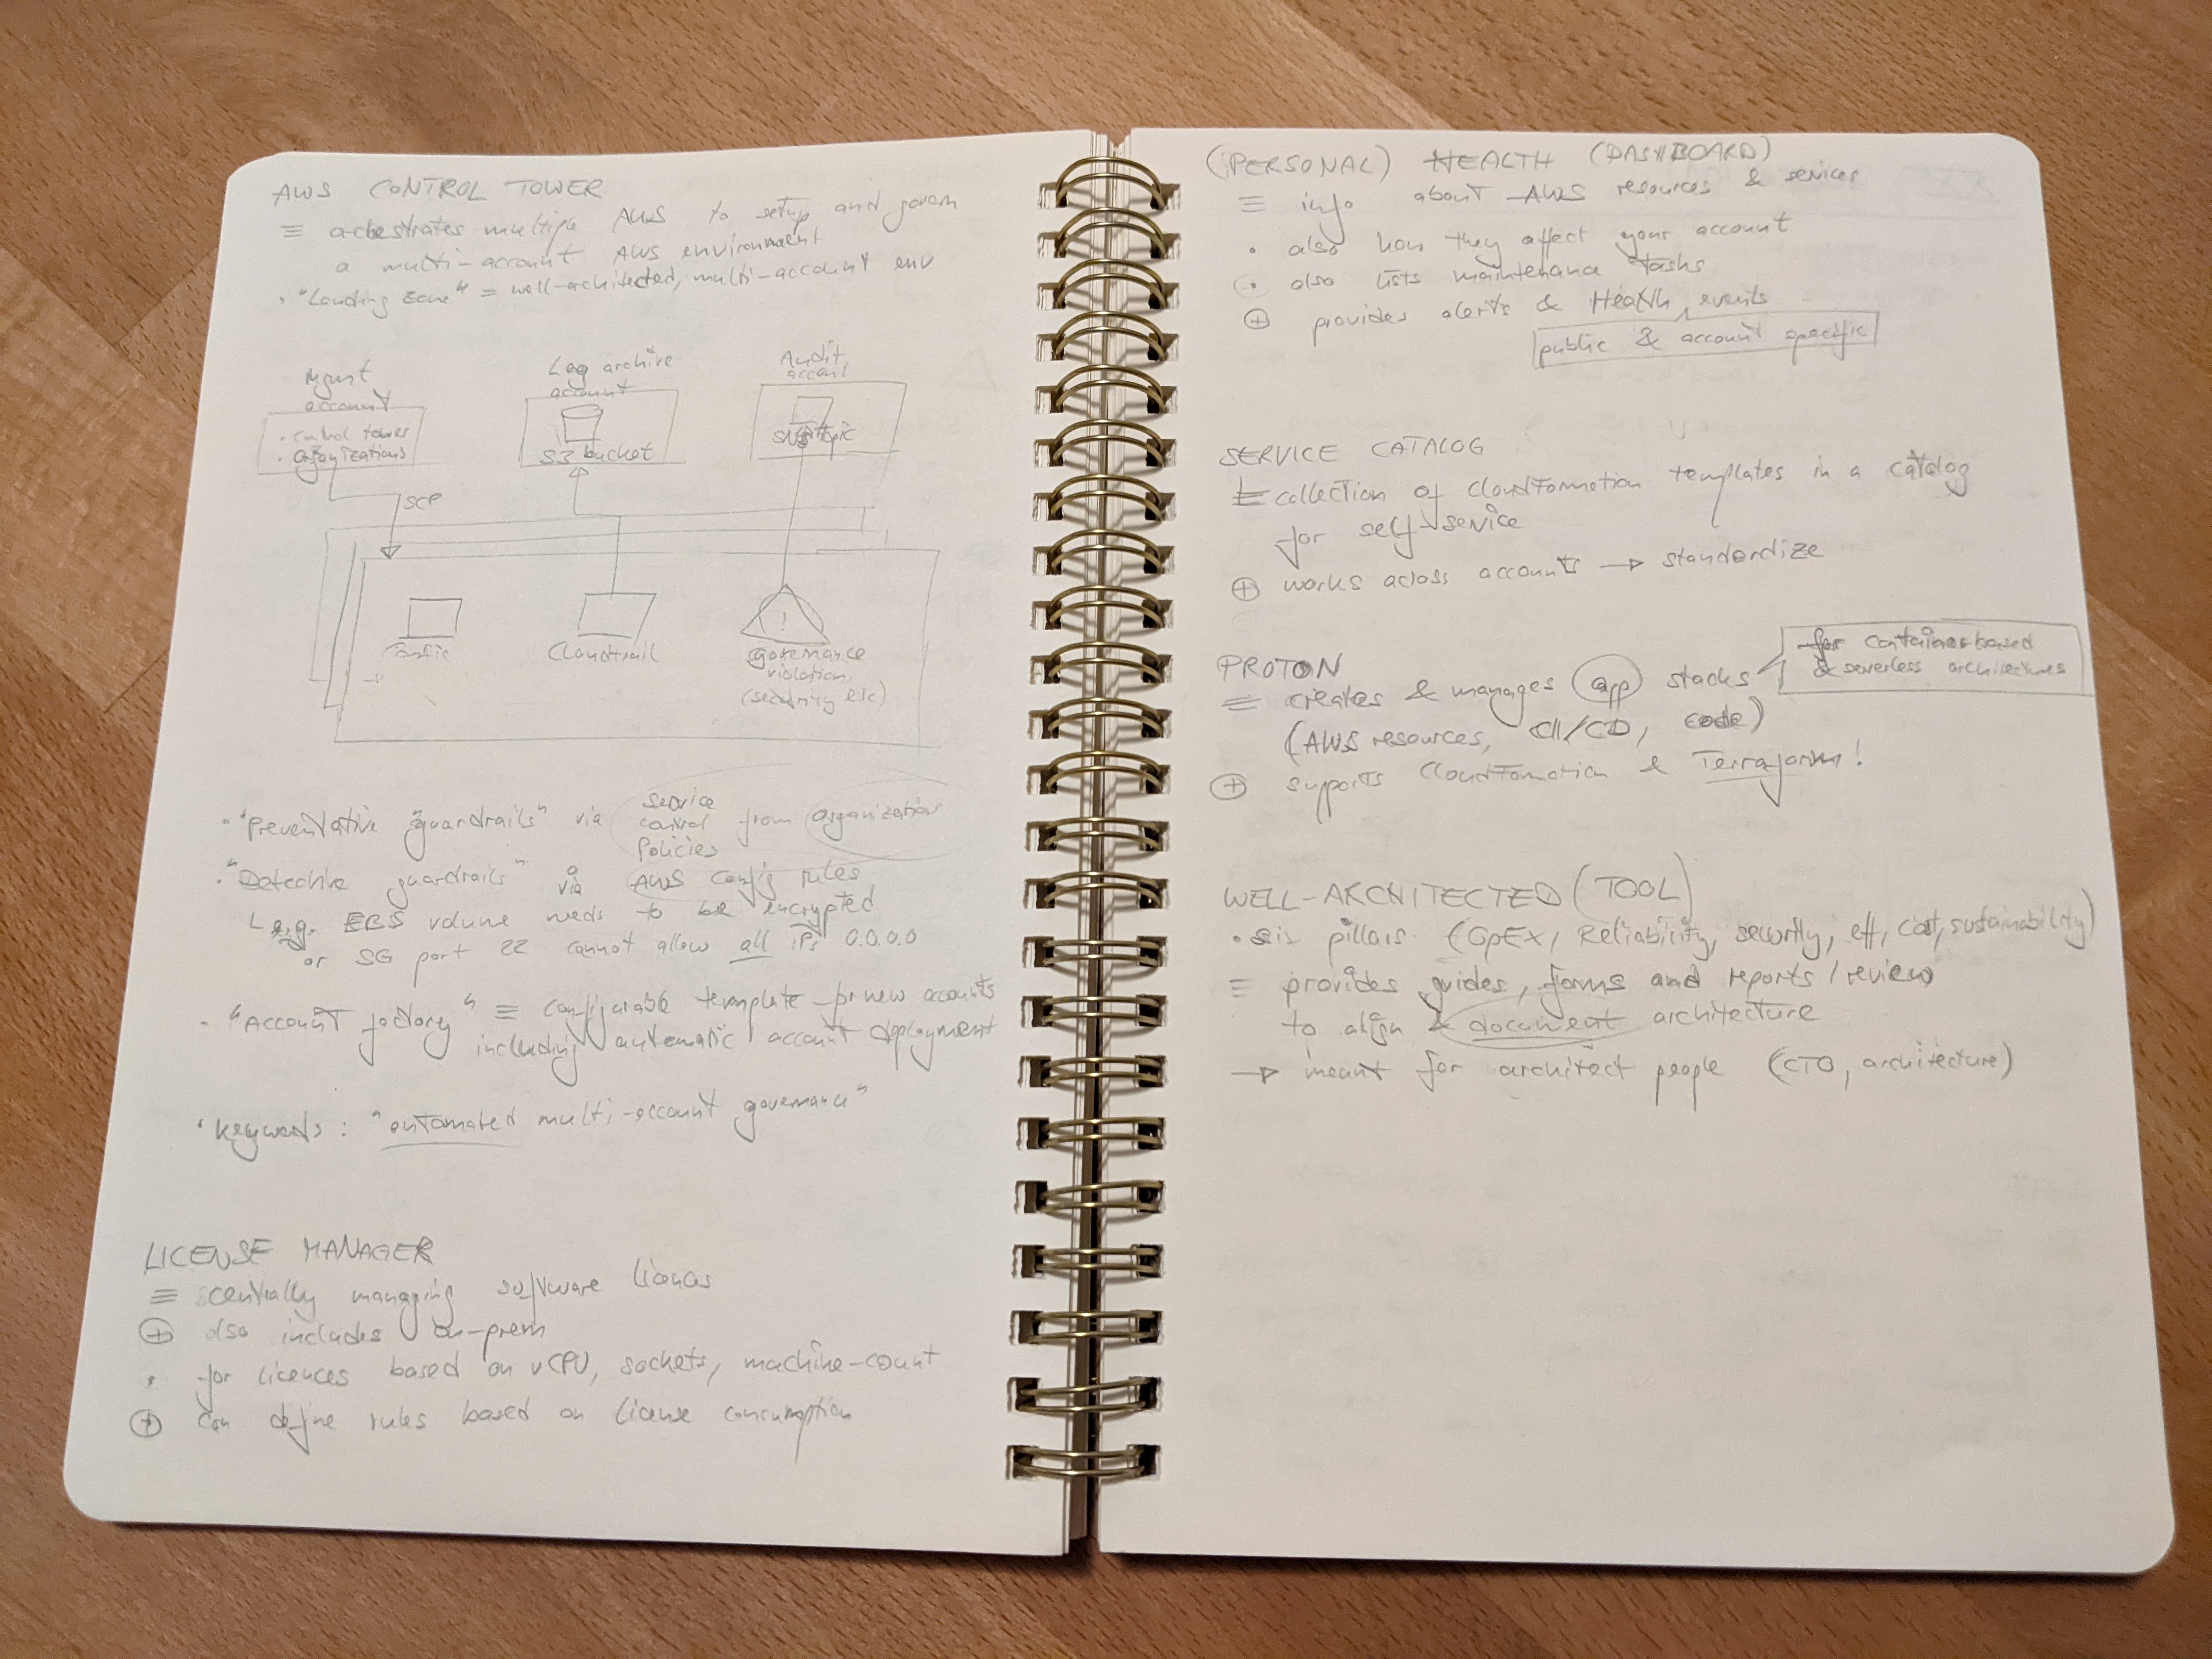 AWS CONTROL TOWER
≡ orchestrates multiple AWS to setup and govern
a multi-account AWS environment
• "Landing zone" = well-architected, multi-account env
Mgmt
account
• Control tower
• Organizations
Log archive
account
S3 bucket
Audit
account
SNS topic
SCP
Config
Cloudtrail
governance
violation
(security etc)
• "Preventative guardrails" via service control Policies from organization
• "Detective guardrails" via AWS Config rules
e.g. EBS volume needs to be encrypted
or SG port 22 cannot allow all IPs 0.0.0.0
• "Account factory" ≡ configurable template for new accounts
including automatic account deployment
• Keywords: "automated multi-account governance"
LICENSE MANAGER
≡ centrally managing software licences
⊕ also includes on-prem
• for licences based on vCPU, sockets, machine-count
⊕ can define rules based on license consumption
(PERSONAL) HEALTH (DASHBOARD)
≡ info about AWS resources & services
• also how they affect your account
• also lists maintenance tasks
⊕ provides alerts & Health events
public & account specific
SERVICE CATALOG
≡ collection of CloudFormation templates in a catalog
for self-service
⊕ works across accounts → standardize
PROTON
≡ creates & manages app stacks
for container-based
& serverless architectures
(AWS resources, CI/CD, code)
⊕ supports CloudFormation & Terraform!
WELL-ARCHITECTED (TOOL)
• six pillars (OpEx, Reliability, security, eff, Cost, sustainability)
≡ provides guides, forms and reports/review
to align & document architecture
→ meant for architect people (CTO, architecture)